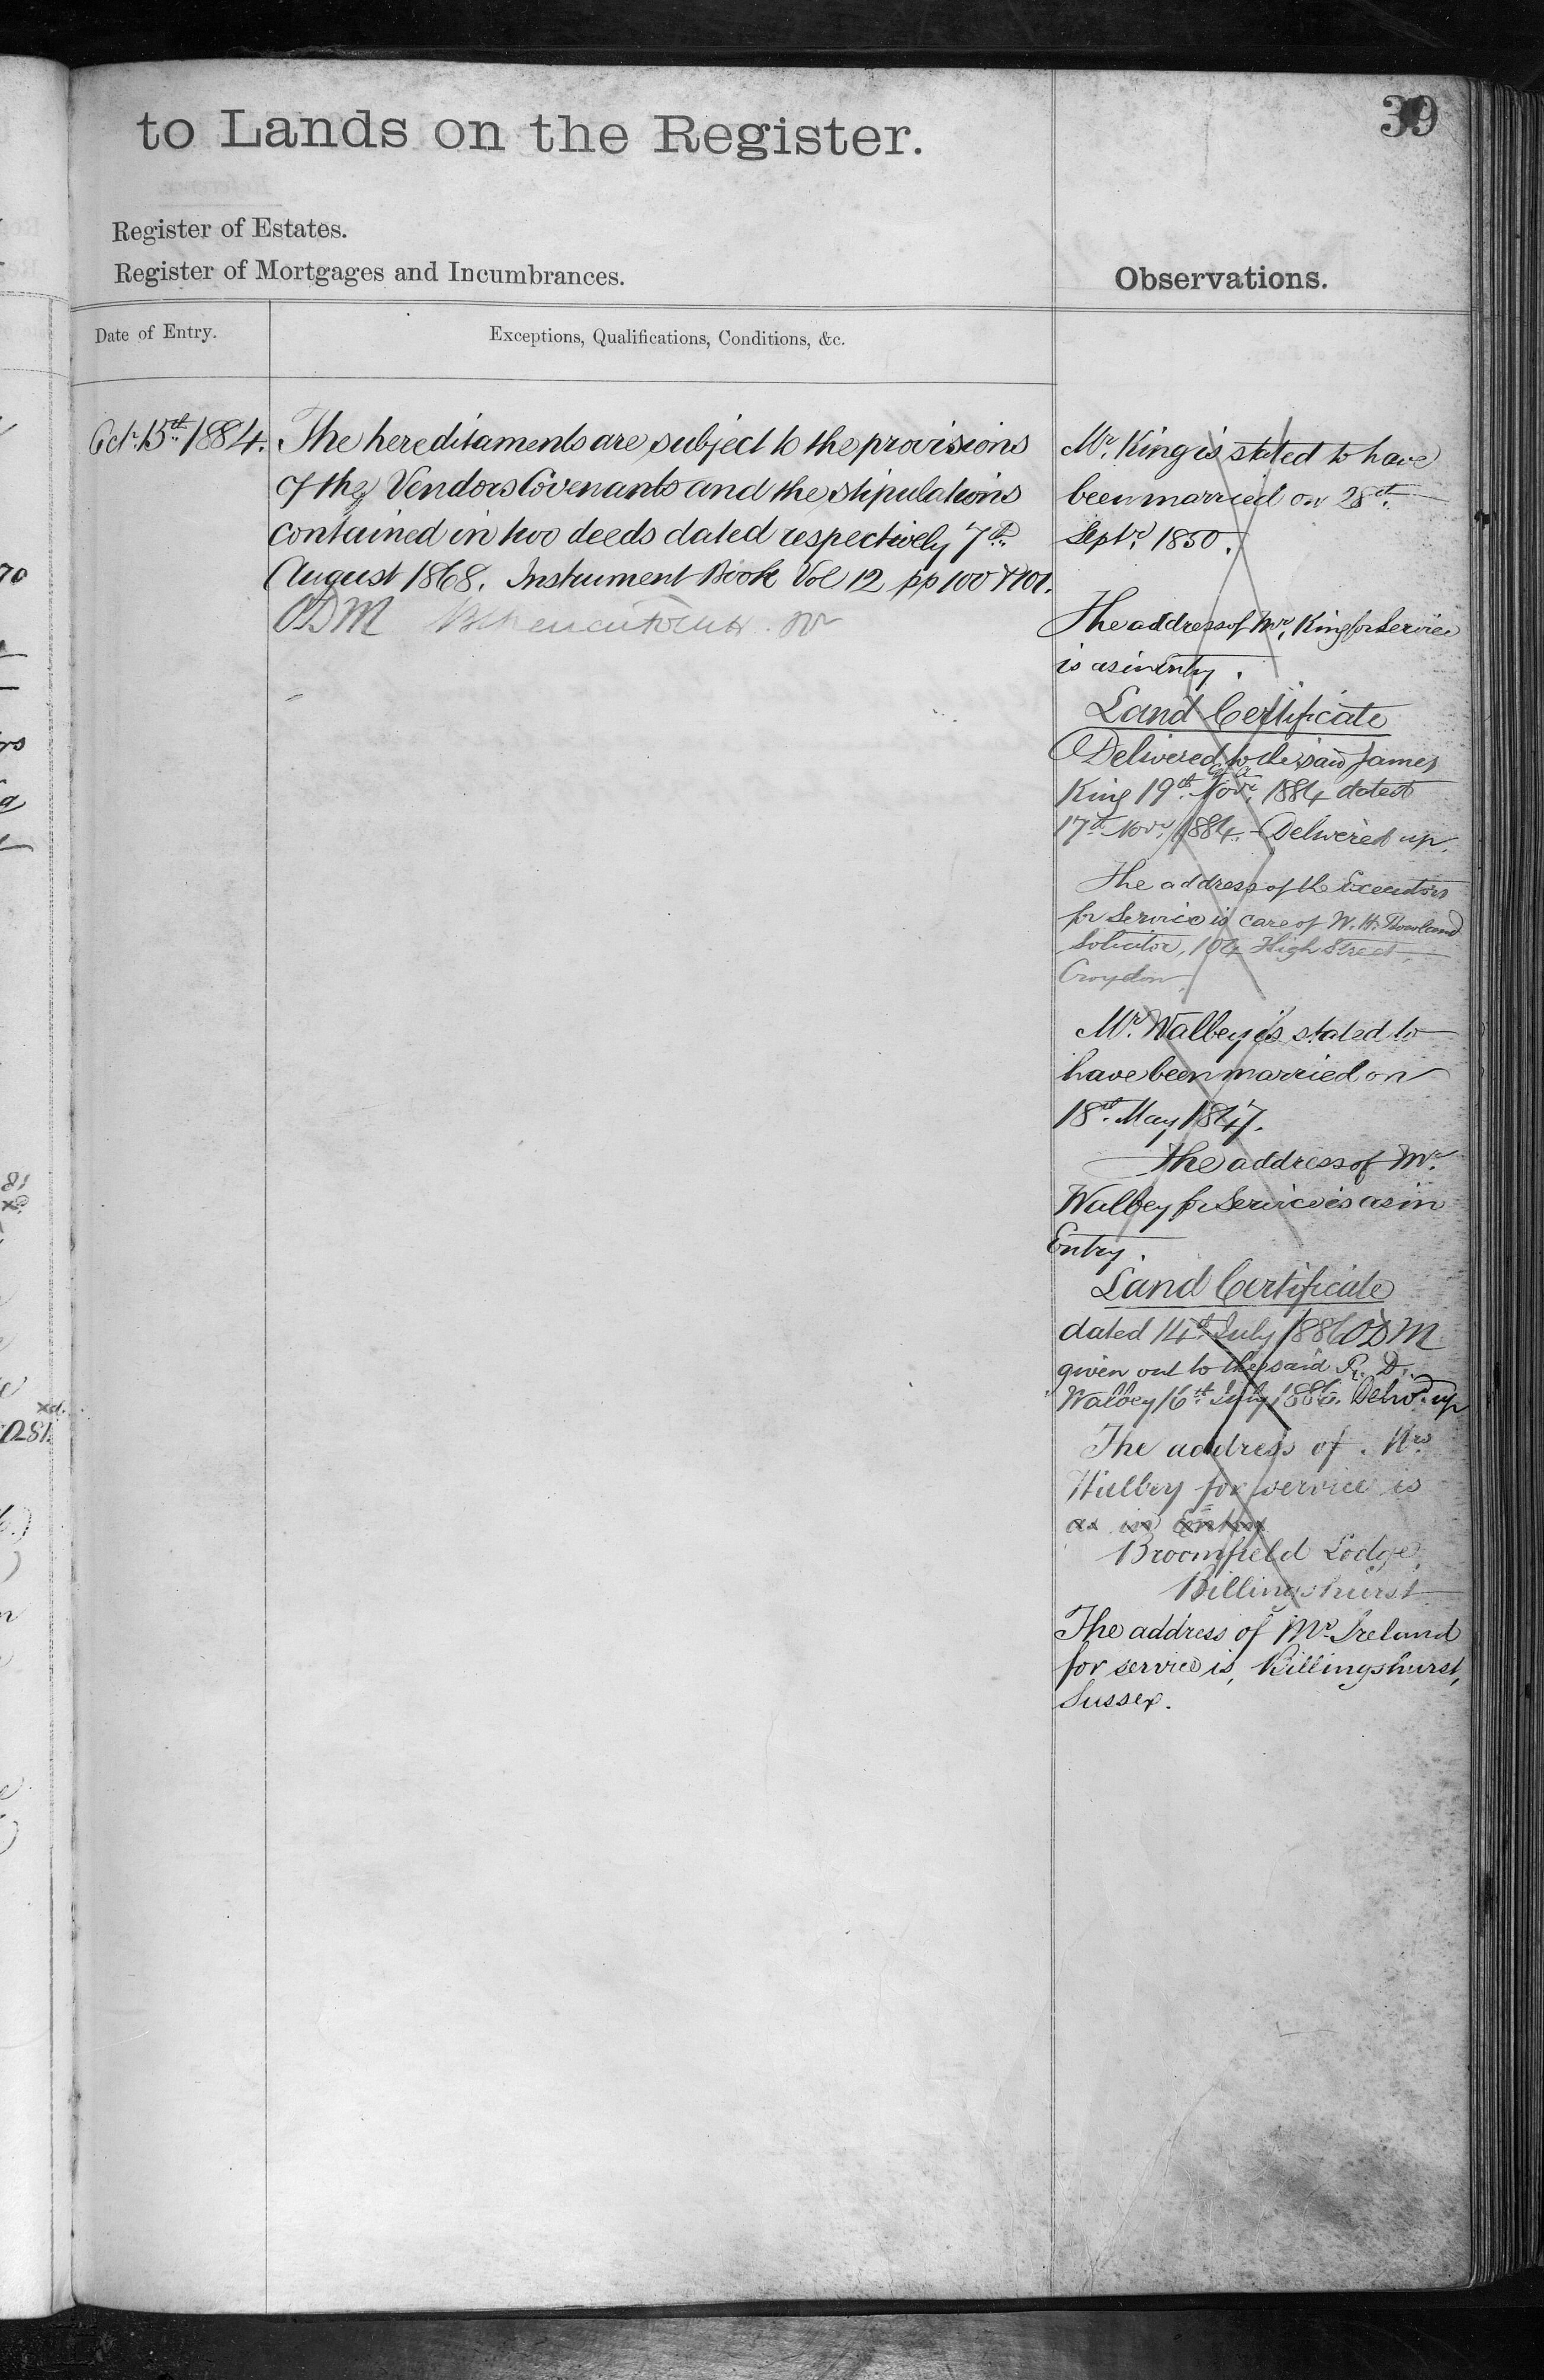 39
to Lands on the Register.
Register of Estates.
Register of Mortgages and Incumbrances.
Observations.
Date of Entry.
Exceptions, Qualifications, Conditions, &c.
Oct. 15th 1884.
The hereditaments are subject to the provisions
of the Vendors Covenants and the stipulations
contained in two deeds dated respectively 7th
August 1868. Instrument Book Vol 12 pp 100 & 101.
ODM
Mr. King is stated to have
been married on 28th
Septr. 1850.
The address of Mr. King for Service
is as in Entry.
Land Certificate
Delivered to the said James
King 19th Novr. 1884 dated
17th Novr. 1884. Delivered up.
The address of the Executors
for Service is care of W. H. Rowland
Solicitor, 104 High Street,
Croydon.
Mr. Walbey is stated to
have been married on
18th May 1847.
The address of Mr.
Walbey for Service is as in
Entry.
Land Certificate
dated 14th July 1886 ODM
given out to the said R. D.
Walbey 16th July 1886. Delivd. up
The address of Mrs
Walbey for service is
as in Entry
Broomfield Lodge,
Billingshurst
The address of Mr Ireland
for service is, Billingshurst,
Sussex.